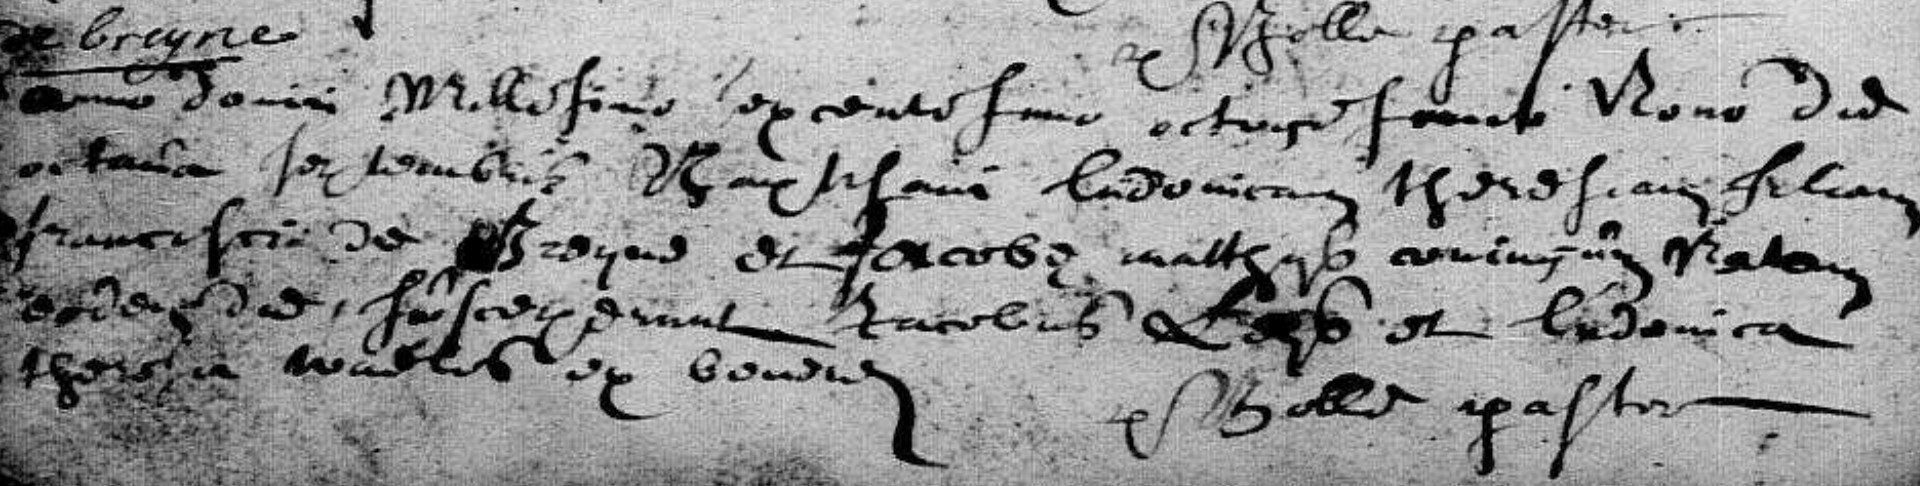 de breyne
Bolle paster
anno domini Millesimo sexcentesimo octuagesimo Nono die
octava septembris Baptisavi ludovicam theresiam filiam
francisci de Breyne et Jacobę matthys coniugum Natam
eodem die, susceperunt Jacobus Leys et ludovica
theresia ex beveren
Bolle pastor